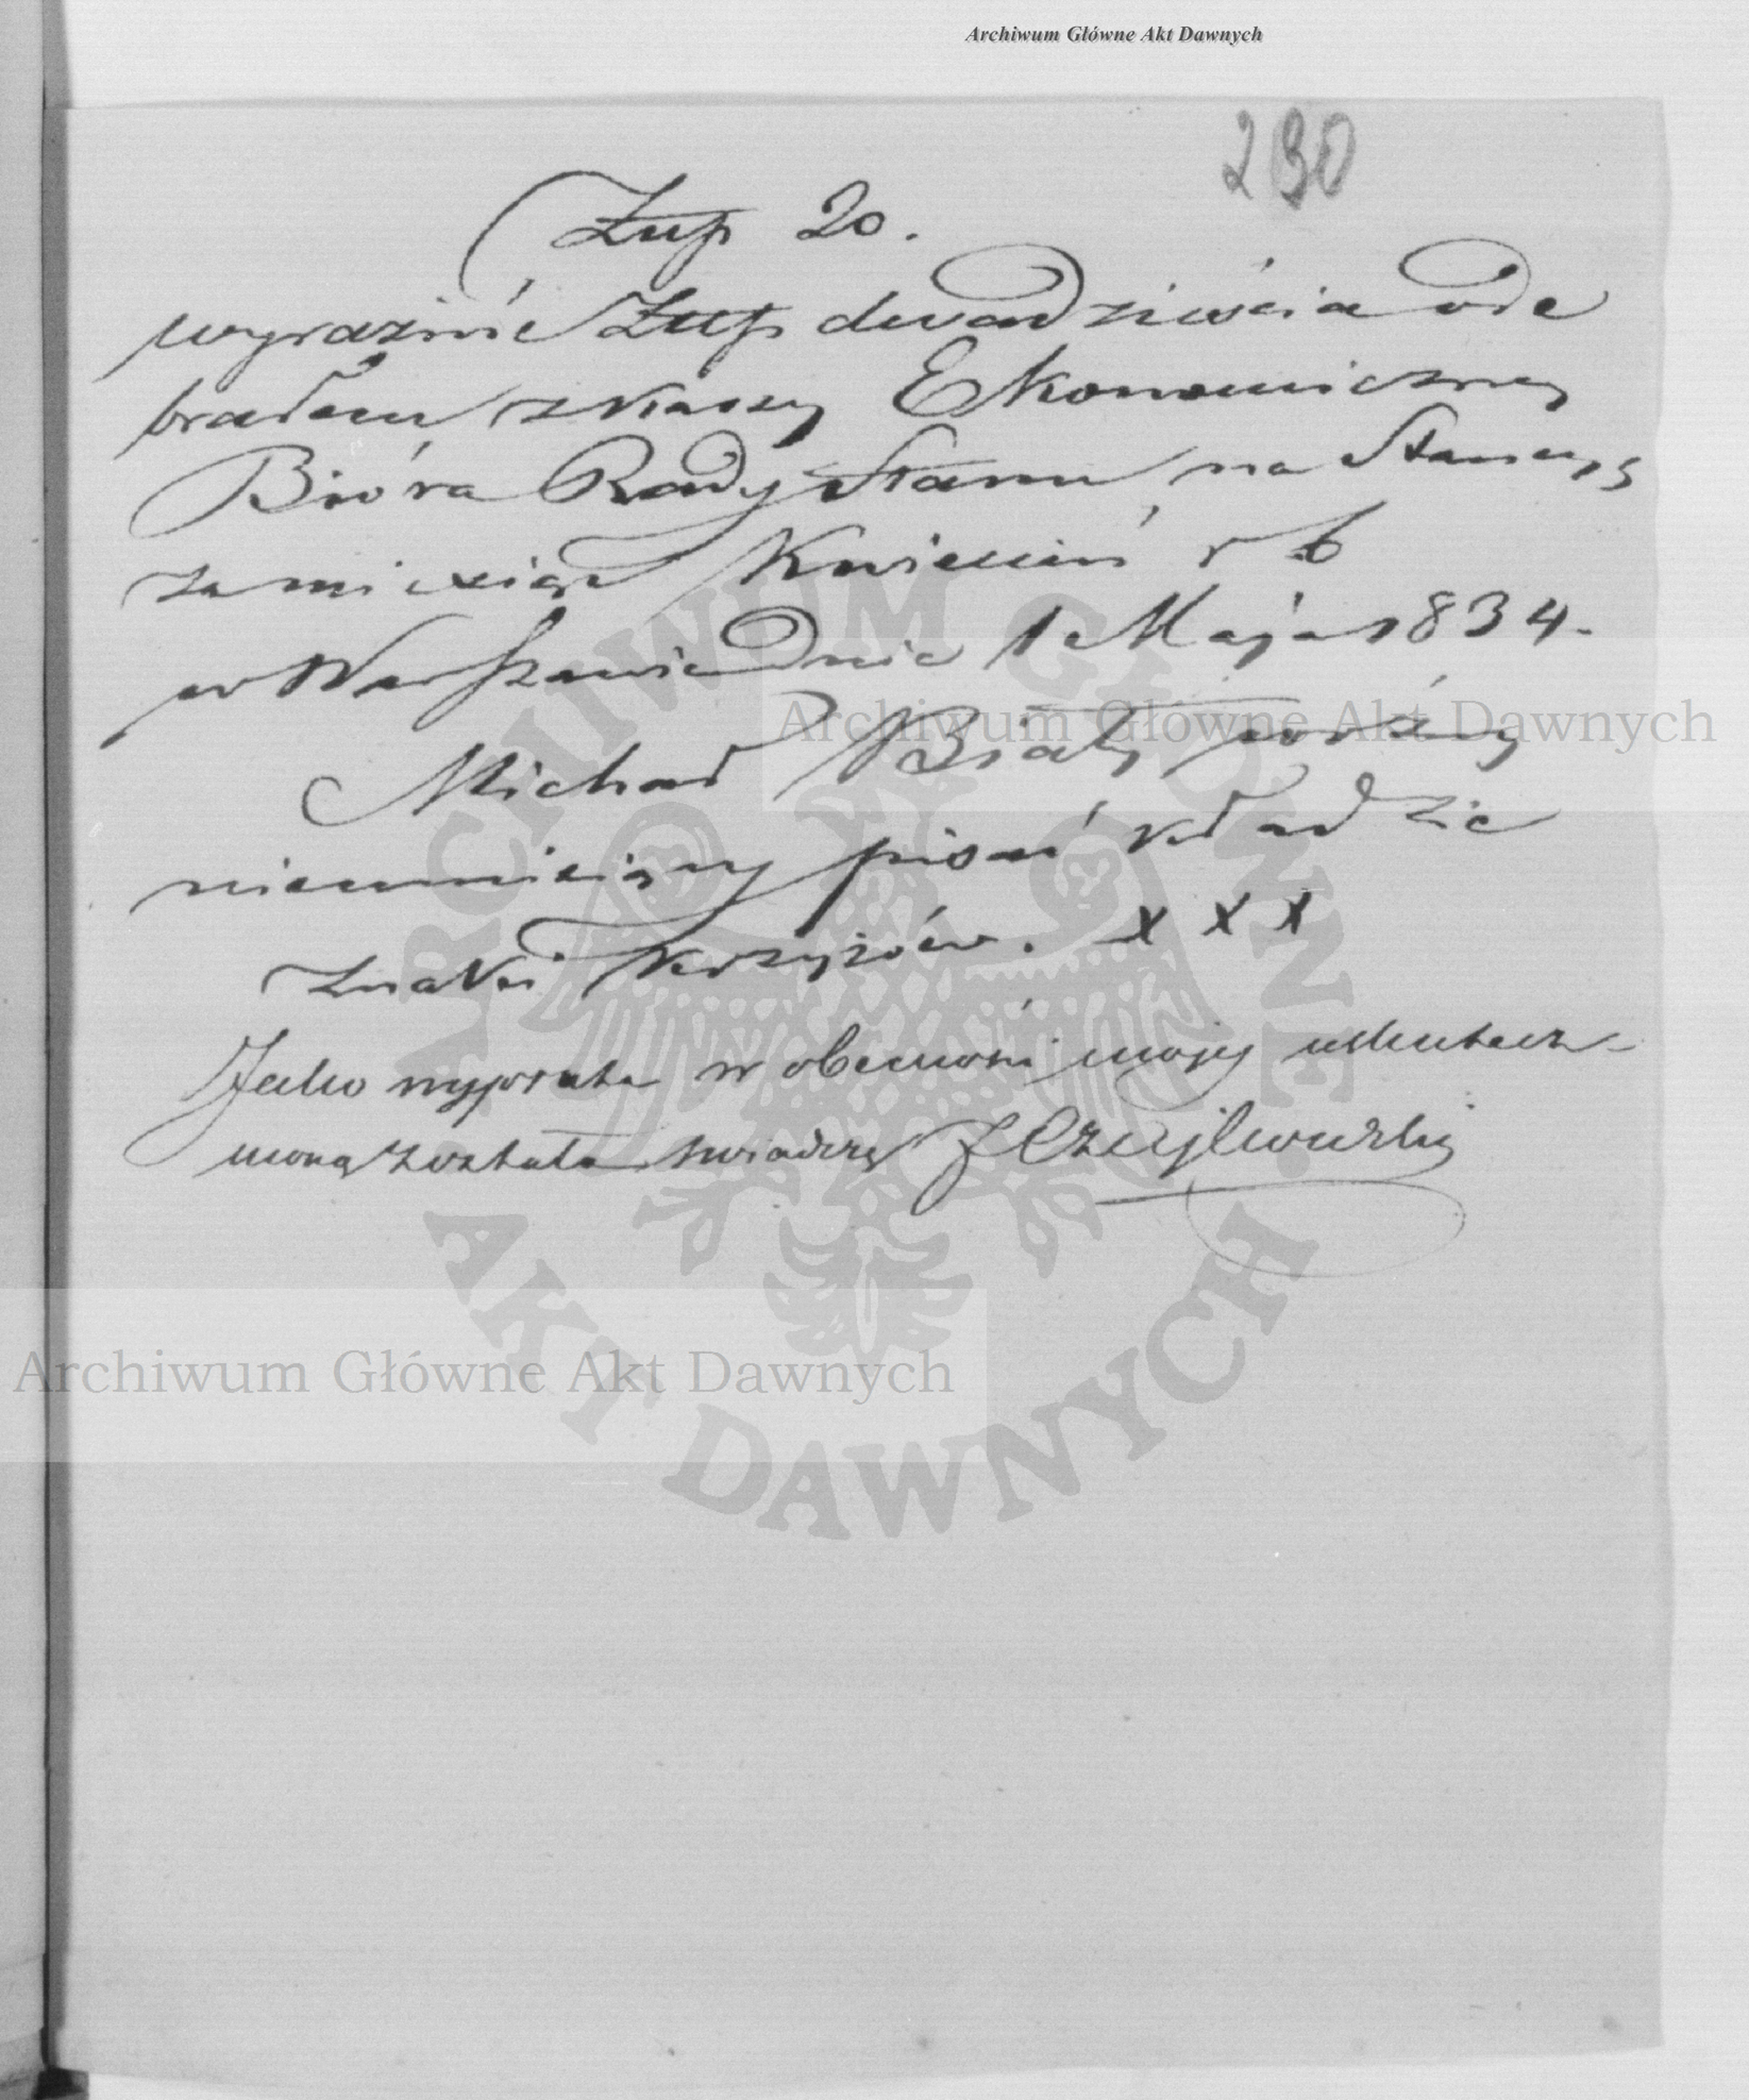 Archiwum Główne Akt Dawnych
290
Złłp 20.
wyraźnie Złłp dwadzieścia ode
brałem z kassy Ekonomiczney
Bióra Rady Stanu na Stancyę
za miesiąc Kwiecień r b
w Warszawie dnia 1 Maja 1834.
Michał Biały
nieumieiący pisać kładzie
znaki krzyżów. x x x
Jako wypłata w obecności mojéj uskutecz-
nioną została świadczę
Archiwum Główne Akt Dawnych
Archiwum Główne Akt Dawnych
ARCHIWUM GŁÓWNE AKT DAWNYCH